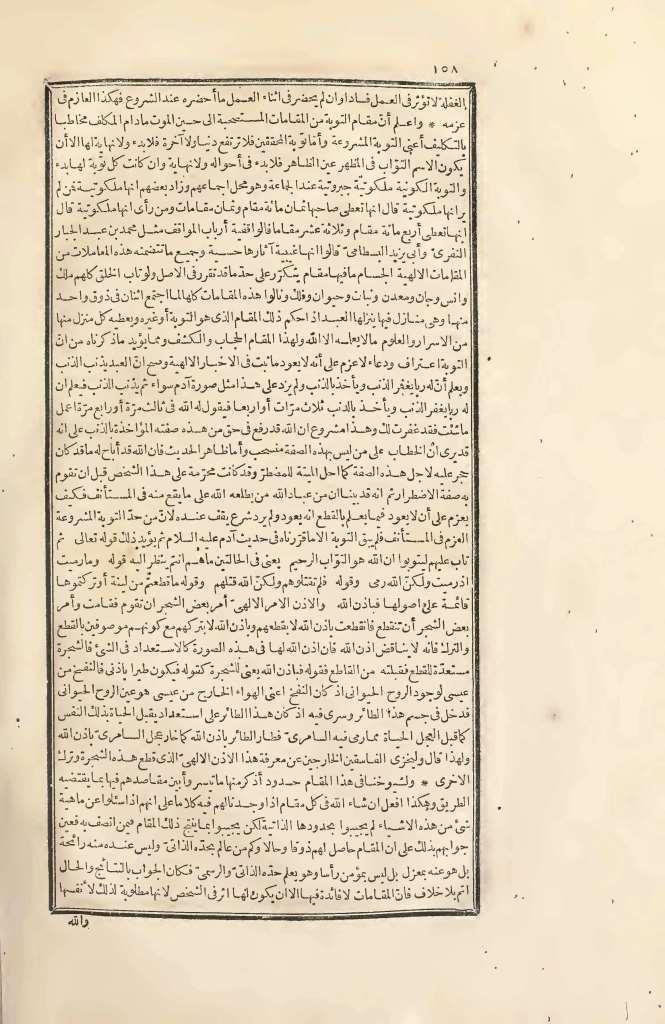 ١٥٨
الغفلة لا تؤثر فى العمل فسادا وان لم يحضر فى اثناء العمل ما أحضره عند الشروع فهكذا العازم فى
عزمه * واعلم أنّ مقام التوبة من المقامات المستصحبة الى حين الموت مادام المكلف مخاطبا
بالتكليف أعنى التوبة المشروعة وأما توبة المحققين فلا ترتفع دنيا ولا آخرة فلا بدء ولا نهاية لها الا أن
يكون الاسم التوّاب فى المظهر عين الظاهر فلا بدء فى أحواله ولا نهاية وان كانت كل توبة لها بدء
والتوبة الكونية ملكوتية جبروتية عند الجماعة وهو محل اجماعهم وزاد بعضهم انها ملكوتية فمن لم
يرانها ملكوتية قال انها تعطى صاحبها ثمان مائة مقام وثمان مقامات ومن رأى انها ملكوتية قال
انها تعطى أربع مائة مقام وثلاثة عشر مقاما قالوا اقضية أرباب المواقف مثل محمد بن عبد الجبار
النفرى وأبى يزيد البسطامى قالوا انها غيبية آثارها حسية وجميع ما تتضمنه هذه المعاملات من
المقامات الالهية الجسام ما فيها مقام يتكرّر على حدّ ما قد تقرر فى الاصل ولو تاب الخلق كلهم ملك
وانس وجان ومعدن ونبات وحيوان وفلك ونالوا هذه المقامات كلها لما اجتمع اثنان فى ذوق واحد
منها وهى منازل فيها ينزلها العبد اذ احكم ذلك المقام الذى هو التوبة أو غيره ويعطيه كل منزل منها
من الاسرار والعلوم ما لا يعلمه الا الله ولهذا المقام الحجاب والكشف ومما يؤيد ما ذكرناه من انّ
التوبة اعتراف ودعاء لا عزم على أنه لا يعود ما ثبت فى الاخبار الالهية وصح انّ العبد يذنب الذنب
ويعلم أنّ له ربا يغفر الذنب ويأخذ بالذنب ولم يزد على هذا مثل صورة آدم سواء ثم يذنب الذنب فيعلم ان
له ربا يغفر الذنب ويأخذ بالذنب ثلاث مرّات أو اربعا فيقول له الله فى ثالث مرّة أو رابع مرّة اعمل
ما شئت فقد غفرت لك وهذا مشروع ان الله قد رفع فى حق من هذه صفته المؤاخذة بالذنب على انه
قد يرى انّ الخطاب على من ليس بهذه الصفة منسحب وأما ظاهر الحديث فان الله قد أباح له ما قد كان
حجر عليه لاجل هذه الصفة كما احل الميتة للمضطرّ وقد كانت محرّمة على هذا الشخص قبل ان تقوم
به صفة الاضطرار ثم انه قد بينا ان من عباد الله من يطلعه الله على ما يقع منه فى المستأنف فكيف
يعزم على أن لا يعود فيما يعلم بالقطع انه يعود ولم يرد شرع يقف عنده لانّ من حدّ التوبة المشروعة
العزم فى المستأنف فلم يبق التوبة الا ما قرّرناه فى حديث آدم عليه السلام ثم يؤيد ذلك قوله تعالى ثم
تاب عليهم ليتوبوا ان الله هو التوّاب الرحيم يعنى فى الحالتين ما هم انتم ينظر اليه قوله وما رميت
اذ رميت ولكنّ الله رمى وقوله فلم تقتلوهم ولكنّ الله قتلهم وقوله ما قطعتم من لينة أو تركتموها
قائمة على اصولها فباذن الله والاذن الامر الالهىّ أمر بعض الشجر ان تقوم فقامت وأمر
بعض الشجر أن تنقطع فانقطعت باذن الله لا بقطعهم وباذن الله لا بتركهم مع كونهم موصوفين بالقطع
والترك فانه لا يناقض اذن الله فان اذن الله لها فى هذه الصورة كالاستعداد فى الشئ فالشجرة
مستعدّة للقطع فقبلته من القاطع فقوله فباذن الله يعنى للشجرة كقوله فيكون طيرا باذنى فالنفخ من
عيسى لوجود الروح الحيوانى اذ كان النفخ اعنى الهواء الخارج من عيسى هو عين الروح الحيوانى
فدخل فى جسم هذا الطائر وسرى فيه اذ كان هذا الطائر على استعداد يقبل الحياة بذلك النفس
كما قبل العجل الحياة مما رمى فيه السامرىّ فطار الطائر باذن الله كما خار عجل السامرىّ باذن الله
ولهذا قال وليخزى الفاسقين الخارجين عن معرفة هذا الاذن الالهىّ الذى قطع هذه الشجرة وترك
الاخرى * ولشيوخنا فى هذا المقام حدود أذكر منها ما تيسر وأبين مقاصدهم فيها بما يقتضيه
الطريق وهكذا افعل ان شاء الله فى كل مقام اذا وجدنا لهم فيه كلاما على انهم اذا سئلوا عن ماهية
شئ من هذه الاشياء لم يجيبوا بحدودها الذاتية لكن يجيبوا بما ينتج ذلك المقام فيمن اتصف به فعين
جوابهم يدلك على ان المقام حاصل لهم ذوقا وحالا وكم من عالم بحدّه الذاتىّ وليس عنده منه رائحة
بل هو عنه بمعزل بل ليس بمؤمن رأسا وهو يعلم حدّه الذاتىّ والرسمىّ فكان الجواب بالنتائج والحال
اتم بلا خلاف فانّ المقامات لا فائدة فيها الا ان يكون لها اثر فى الشخص لانها مطلوبة لذلك لا لنفسها
والله